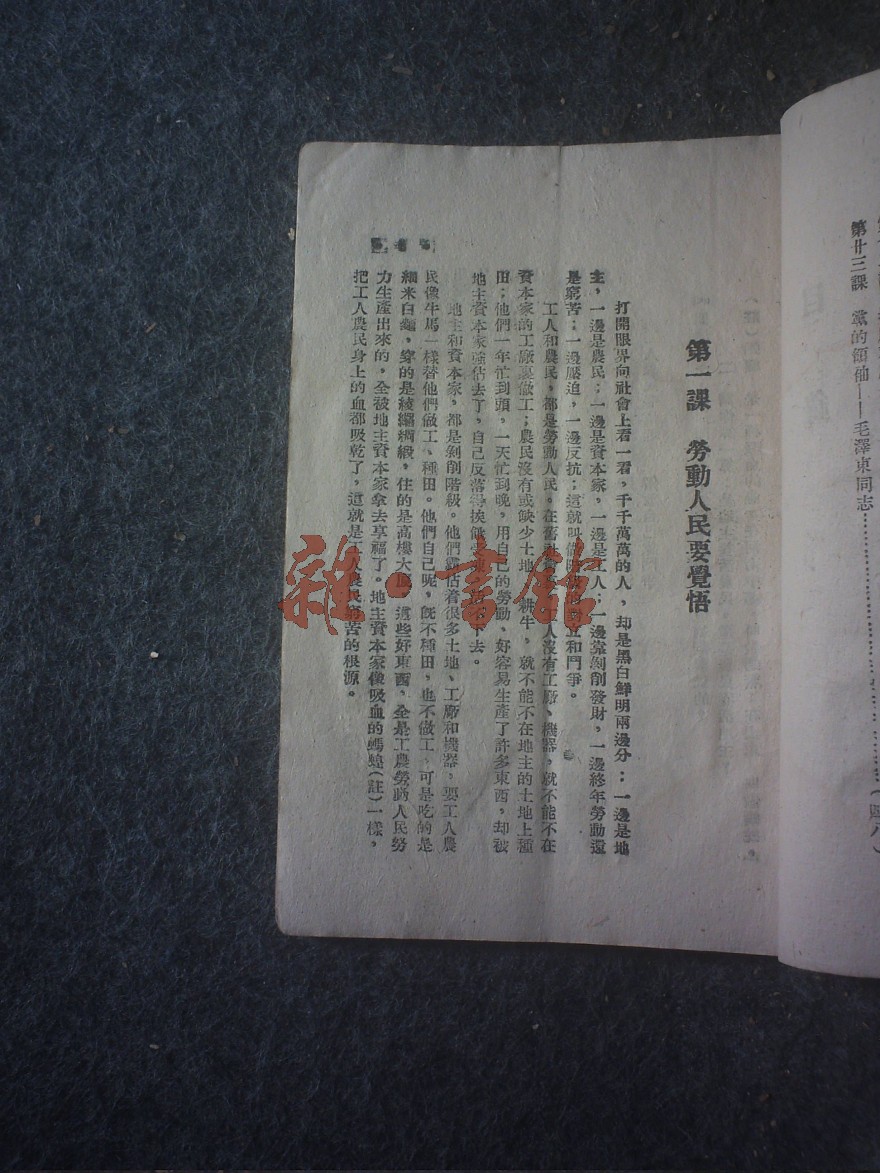 第廿三課 黨的領袖——毛澤東同志
第一課 勞動人民要覺悟
打開眼界向社會上看一看，千千萬萬的人，却是黑白鮮明兩邊分：一邊是地
主，一邊是農民；一邊是資本家，一邊是工人；一邊靠剝削發財，一邊終年勞動還
是窮苦；一邊壓迫，一邊反抗；這就叫做 對立和鬥爭。
工人和農民，都是勞動人民。在舊社會 人沒有工廠、機器，就不能不在
資本家的工廠裏做工；農民沒有或缺少土地、耕牛，就不能不在地主的土地上種
田；他們一年忙到頭，一天忙到晚，用自己的勞動，好容易生產了許多東西，却被
地主資本家強佔去了，自己反落得挨餓受凍， 下去。
地主和資本家，都是剝削階級。他們霸佔着很多土地、工廠和機器，要工人農
民像牛馬一樣替他們做工、種田。他們自己呢，既不種田，也不做工，可是吃的是
細米白麵，穿的是綾羅綢緞，住的是高樓大廈，這些好東西，全是工農勞動人民努
力生產出來的，全被地主資本家拿去享福了。地主資本家像吸血的螞蝗（註）一樣，
把工人農民身上的血都吸乾了，這就是工人農民窮苦的根源。
雜·書館